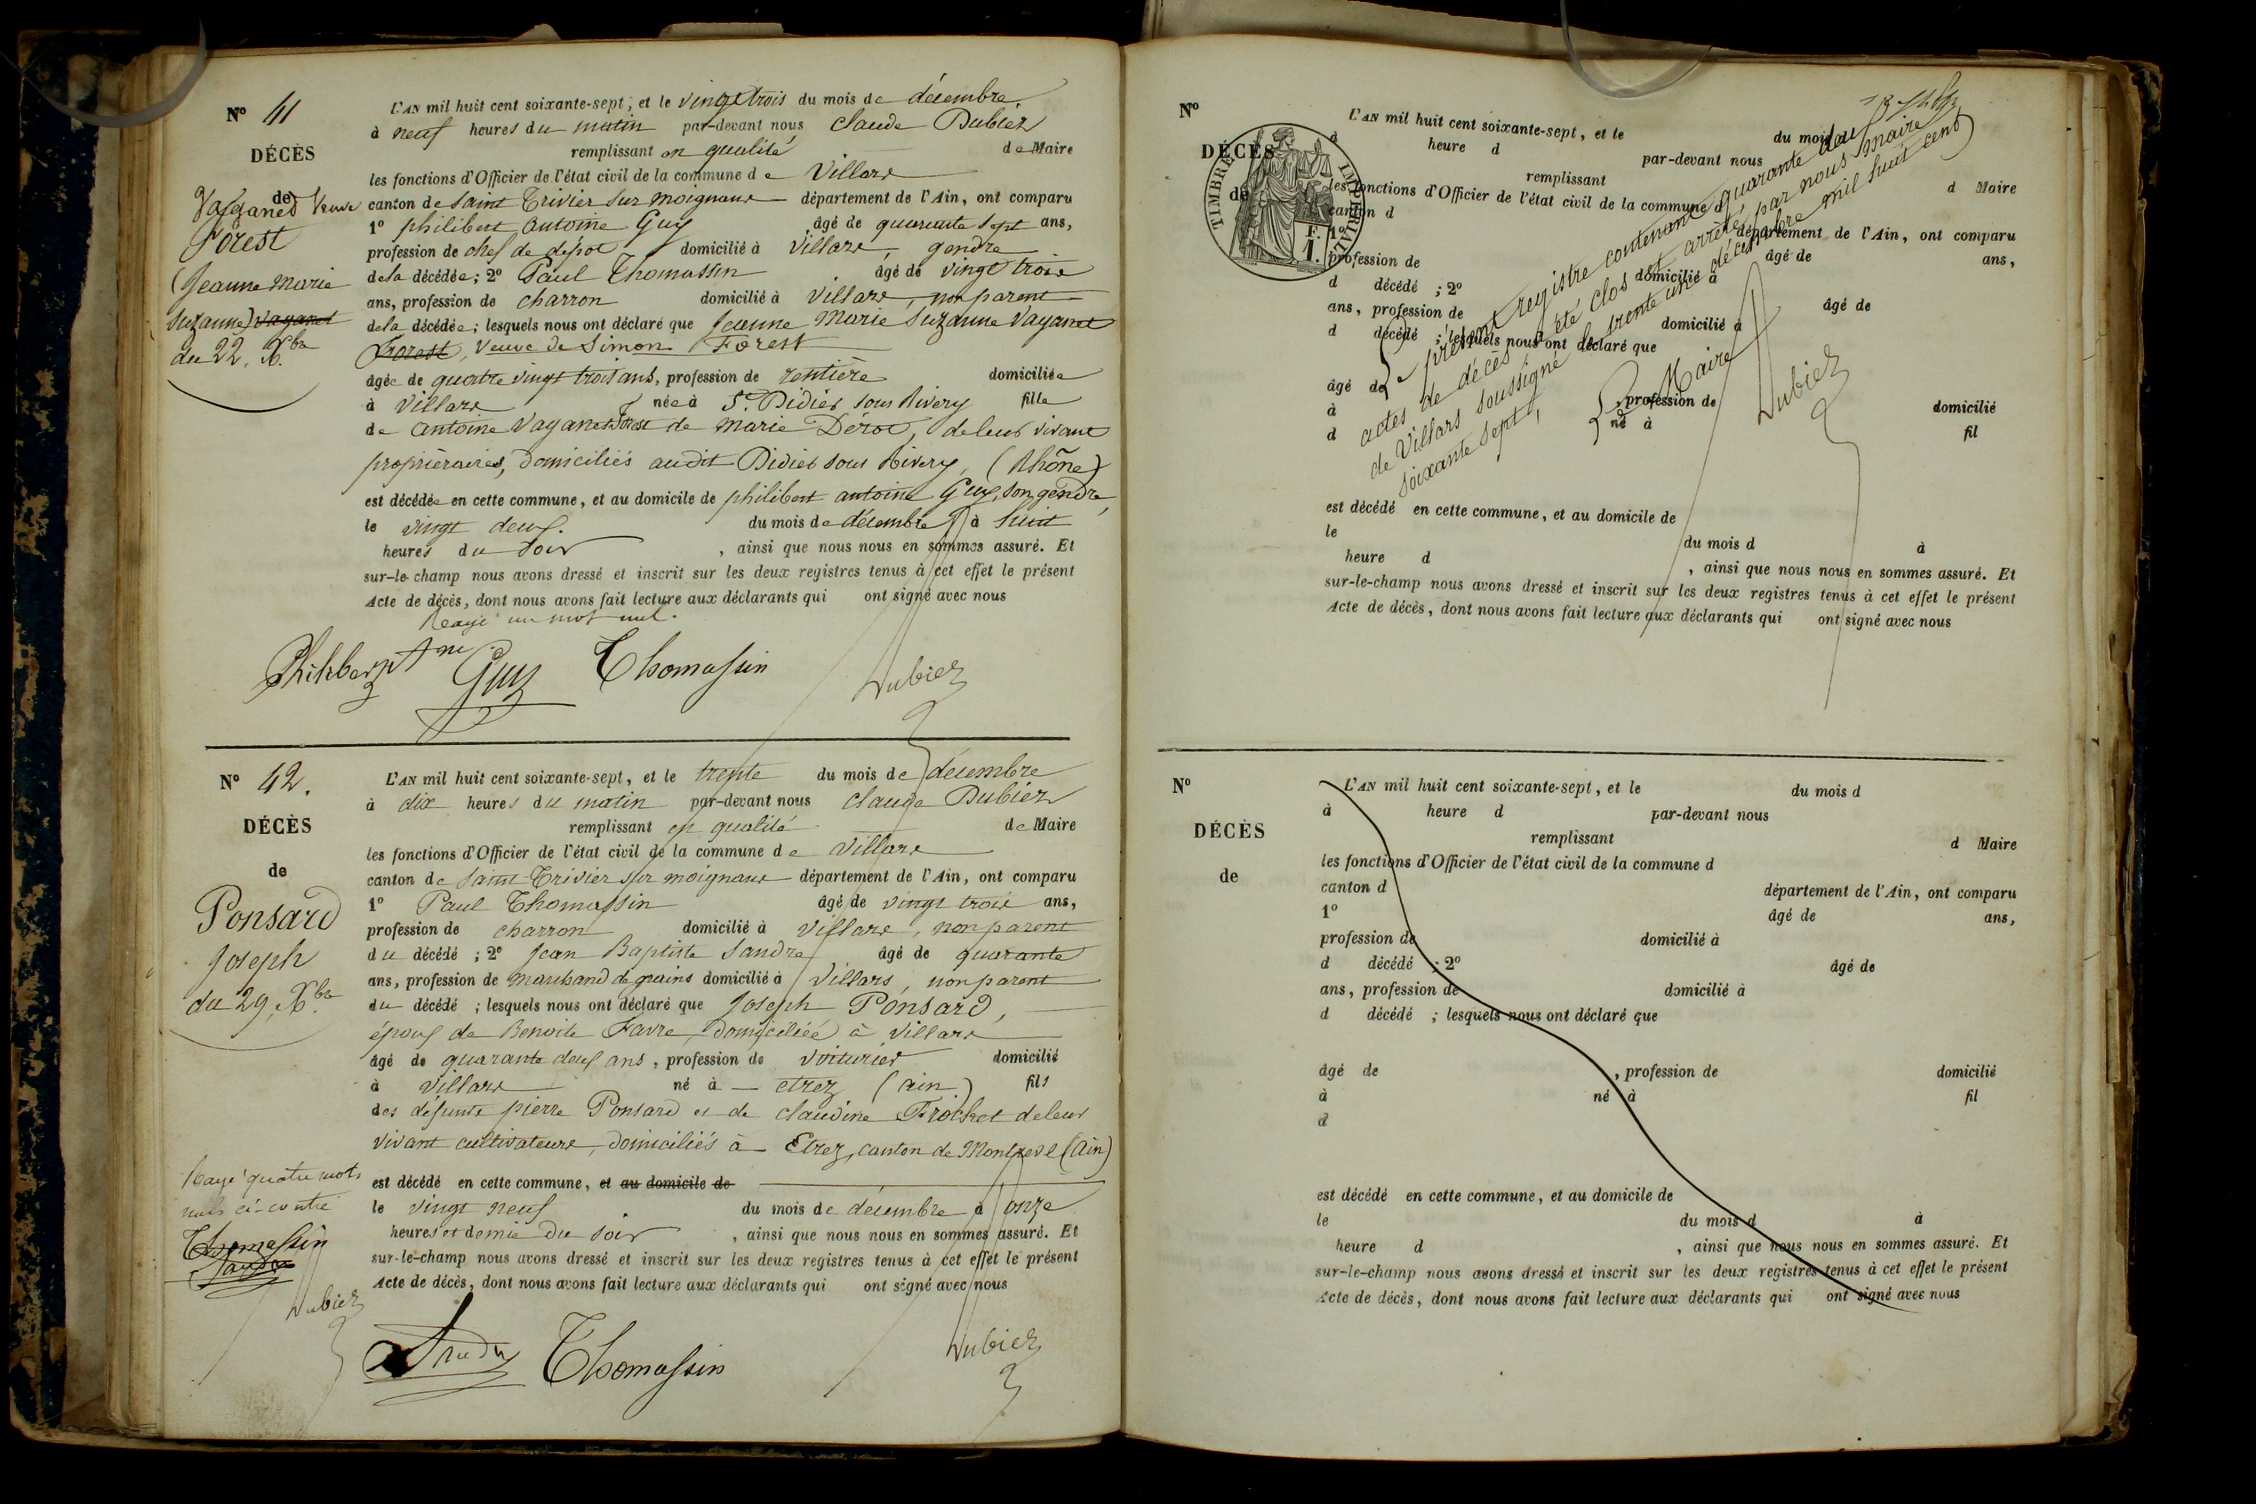 N° 41
DÉCÈS
de
Vaganet Veuve
Forest
(Jeanne Marie
Suzanne) Vaganet
du 22. Xbre
L'AN mil huit cent soixante-sept, et le vingt trois du mois de décembre
à neuf heures du matin par-devant nous Claude Dubiez
remplissant en qualité de Maire
les fonctions d'Officier de l'état civil de la commune de Villars
canton de Saint Trivier sur moignans département de l'Ain, ont comparu
1° philibert antoine Guy âgé de quarante sept ans,
profession de chef de depot domicilié à Villars, gendre
de la décédée; 2° Paul Thomassin âgé de vingt trois
ans, profession de charron domicilié à Villars, non parent
de la décédée; lesquels nous ont déclaré que Jeanne Marie Suzanne Vaganet
Forest, Veuve de Simon Forest
âgée de quatre vingt trois ans, profession de rentière domiciliée
à Villars née à St. Didier sous Rivery fille
de antoine Vaganet et de marie Dérot, de leur vivant
propriétaires, domiciliés audit Didier sous Rivery, (Rhône)
est décédée en cette commune, et au domicile de philibert antoine Guy, son gendre,
le vingt deux du mois de décembre à huit
heures du soir, ainsi que nous nous en sommes assuré. Et
sur-le-champ nous avons dressé et inscrit sur les deux registres tenus à cet effet le présent
Acte de décès, dont nous avons fait lecture aux déclarants qui ont signé avec nous
Rayé un mot nul.
Philibert Ane Guy Thomassin Dubiez
N° 42.
DÉCÈS
de
Ponsard
Joseph
du 29. Xbre
L'AN mil huit cent soixante-sept, et le trente du mois de décembre
à dix heures du matin par-devant nous Claude Dubiez
remplissant en qualité de Maire
les fonctions d'Officier de l'état civil de la commune de Villars
canton de Saint Trivier sur moignans département de l'Ain, ont comparu
1° Paul Thomassin âgé de vingt trois ans,
profession de charron domicilié à Villars, non parent
du décédé; 2° Jean Baptiste Sandra âgé de quarante
ans, profession de marchand de grains domicilié à Villars, non parent
du décédé; lesquels nous ont déclaré que Joseph Ponsard,
époux de Benoite Favre, domiciliée à Villars
âgé de quarante deux ans, profession de voiturier domicilié
à Villars né à etrez (ain) fils
des défunts pierre Ponsard et de claudine Frochet de leur
vivant cultivateurs, domiciliés à Etrez, canton de Montrevel (Ain)
est décédé en cette commune, et au domicile de
le vingt neuf du mois de décembre à onze
heures et demie du soir, ainsi que nous nous en sommes assuré. Et
sur-le-champ nous avons dressé et inscrit sur les deux registres tenus à cet effet le présent
Acte de décès, dont nous avons fait lecture aux déclarants qui ont signé avec nous
Rayé quatre mots
nuls ci-contre
Thomassin
Sandra
Dubiez
Sandra Thomassin Dubiez
N°
DÉCÈS
de
TIMBRE IMPÉRIAL
F.
1.
L'AN mil huit cent soixante-sept, et le du mois d
à heure d par-devant nous
remplissant d Maire
les fonctions d'Officier de l'état civil de la commune d
canton d département de l'Ain, ont comparu
1° âgé de ans,
profession de domicilié à
d décédé; 2° âgé de
ans, profession de domicilié à
d décédé; lesquels nous ont déclaré que
âgé de profession de domicilié
à né à fil
d
Le présent registre contenant quarante deux
actes de décès, a été clos et arrêté par nous maire
de Villars soussigné le trente un décembre mil huit cent
soixante sept,
Le Maire
Dubiez
est décédé en cette commune, et au domicile de
le du mois d à
heure d, ainsi que nous nous en sommes assuré. Et
sur-le-champ nous avons dressé et inscrit sur les deux registres tenus à cet effet le présent
Acte de décès, dont nous avons fait lecture aux déclarants qui ont signé avec nous
N°
DÉCÈS
de
L'AN mil huit cent soixante-sept, et le du mois d
à heure d par-devant nous
remplissant d Maire
les fonctions d'Officier de l'état civil de la commune d
canton d département de l'Ain, ont comparu
1° âgé de ans,
profession de domicilié à
d décédé; 2° âgé de
ans, profession de domicilié à
d décédé; lesquels nous ont déclaré que
âgé de, profession de domicilié
à né à fil
d
est décédé en cette commune, et au domicile de
le du mois d à
heure d, ainsi que nous nous en sommes assuré. Et
sur-le-champ nous avons dressé et inscrit sur les deux registres tenus à cet effet le présent
Acte de décès, dont nous avons fait lecture aux déclarants qui ont signé avec nous